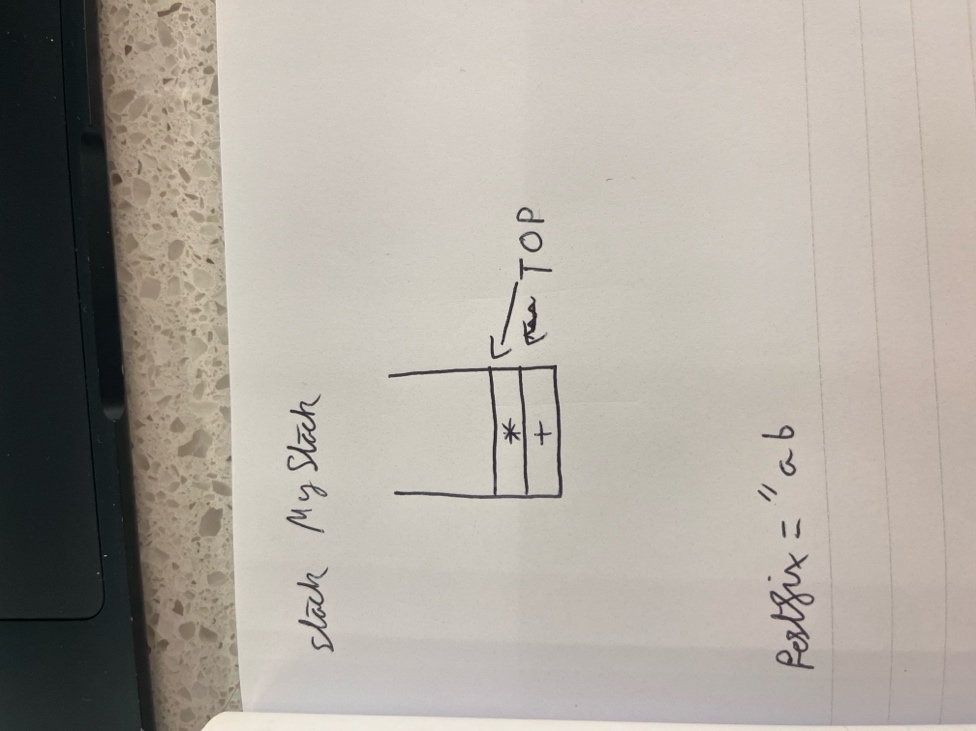 Stack My Stack
TOP
*
+
Postfix = "ab